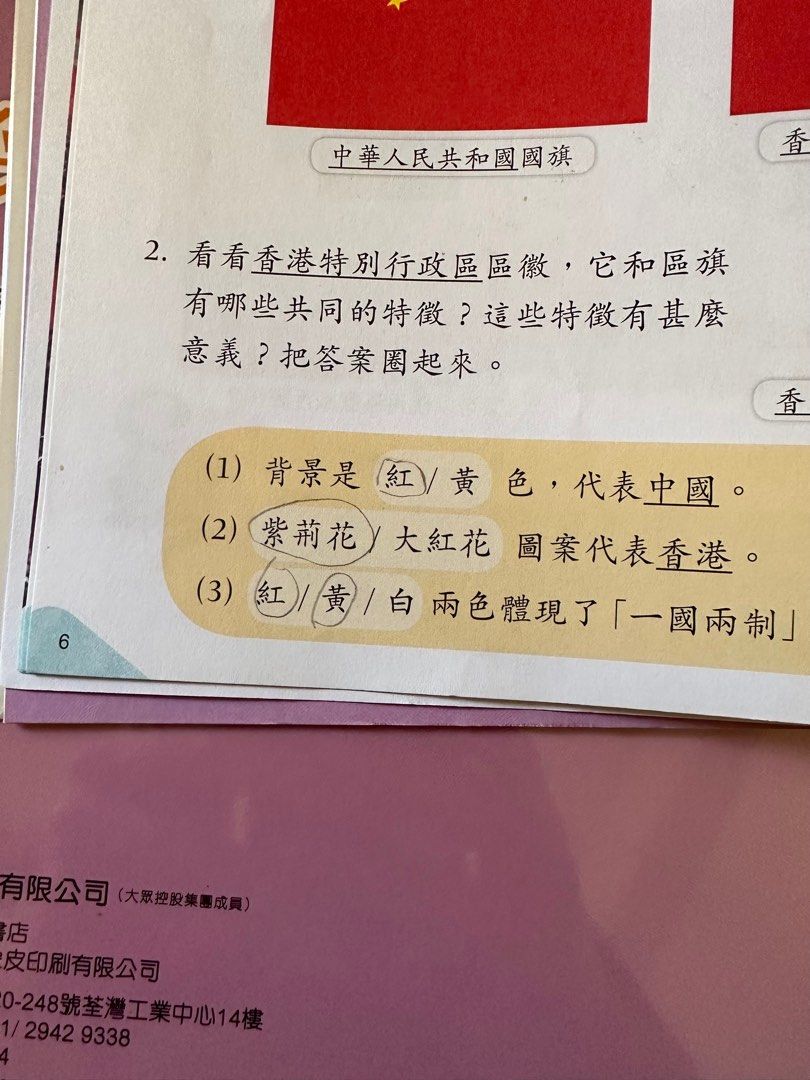 中華人民共和國國旗
香
2. 看看香港特別行政區區徽，它和區旗
有哪些共同的特徵？這些特徵有甚麼
意義？把答案圈起來。
香
(1) 背景是 紅 / 黃 色，代表中國。
(2) 紫荊花 / 大紅花 圖案代表香港。
(3) 紅 / 黃 / 白 兩色體現了「一國兩制」
6
有限公司（大眾控股集團成員）
書店
皮印刷有限公司
20-248號荃灣工業中心14樓
1/ 2942 9338
4